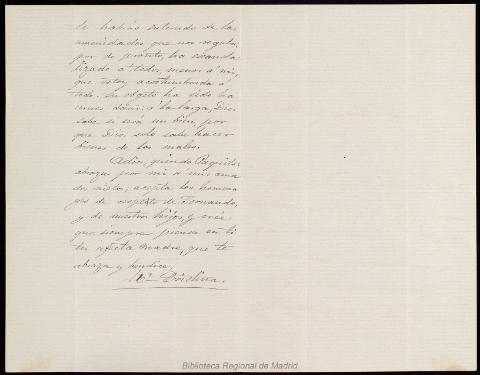 te habrás enterado de las
amenidades que nos regala;
por de pronto, ha escanda-
lizado á todos, menos á mi,
que estoy acostumbrada á
todo. Su objeto ha sido ha-
cernos daño; á la larga, Dios
sabe si será un bien, por
que Dios solo sabe hacer
bienes de los males.
Adios, querido Paquito;
abraza por mi á mis ama-
dos nietos; acepta los homena-
ges de respeto de Fernando,
y de nuestros hijos, y cree
que siempre piensa en ti
tu afecta madre, que te
abraza y bendice,
Mª Cristina.
Biblioteca Regional de Madrid